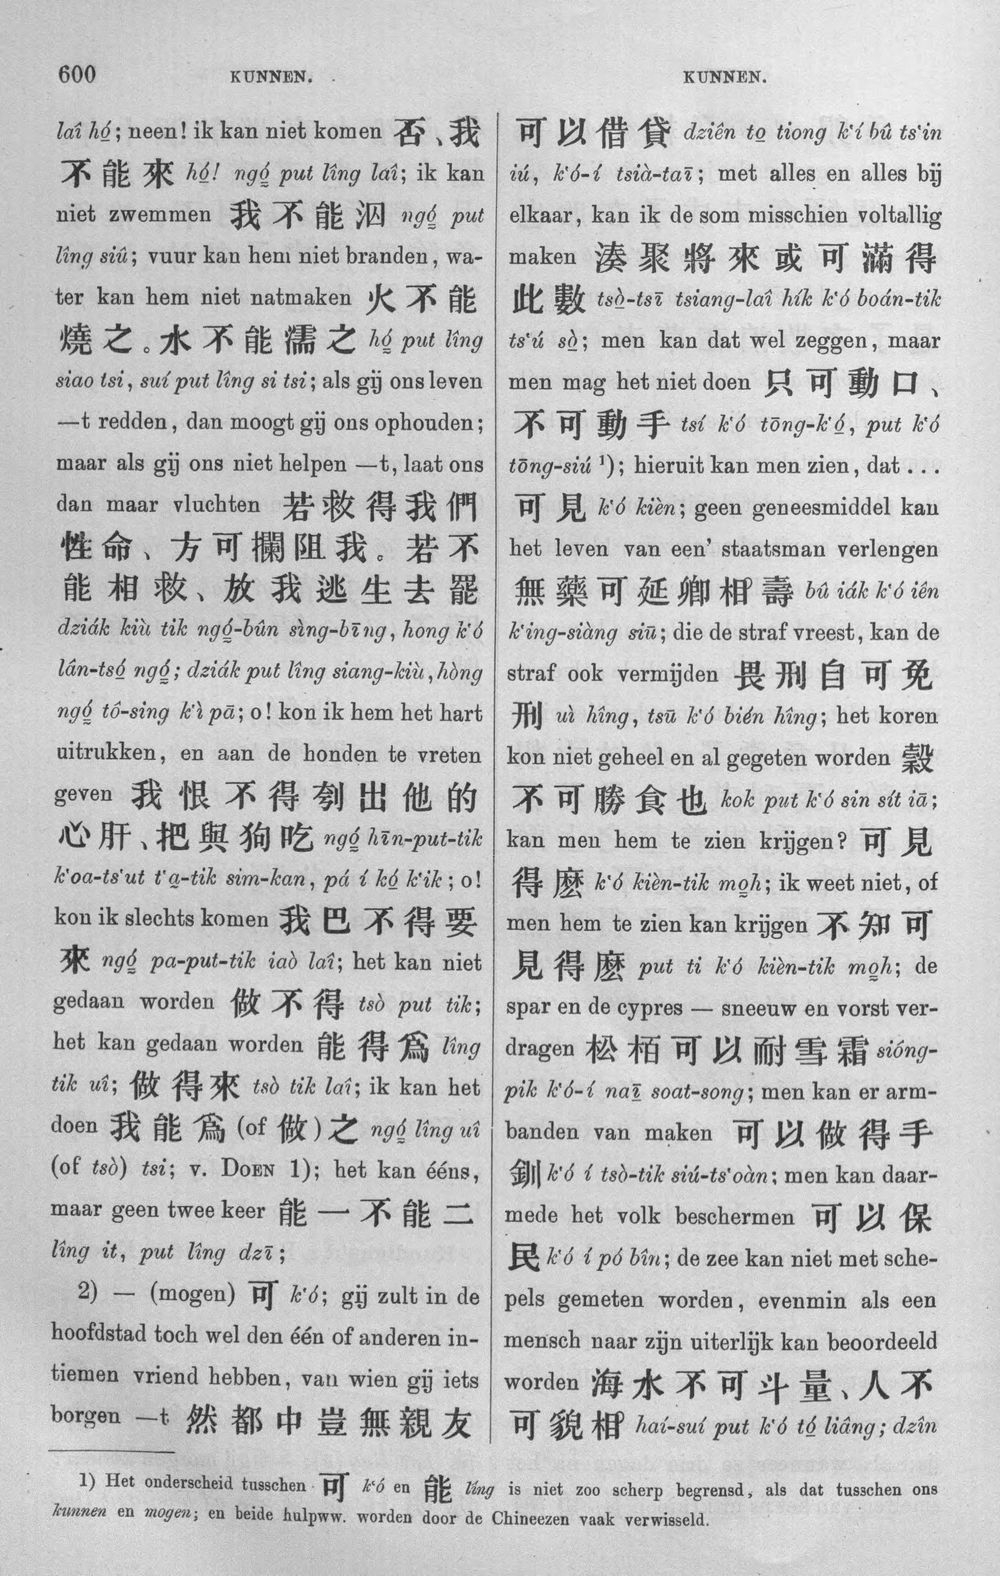 600
KUNNEN.
KUNNEN.
laî hó̤; neen! ik kan niet komen 否、我
不能來 hó̤! ngó̤ put lîng laî; ik kan
niet zwemmen 我不能泅 ngó̤ put
lîng siû; vuur kan hem niet branden, wa-
ter kan hem niet natmaken 火不能
燒之。水不能濡之 hó̤ put lîng
siao tsi, suí put lîng si tsi; als gij ons leven
—t redden, dan moogt gij ons ophouden;
maar als gij ons niet helpen —t, laat ons
dan maar vluchten 若救得我們
性命、方可攔阻我。若不
能相救、放我逃生去罷
dziák kiù tik ngó̤-bûn sìng-bīng, hong k‘ó
lân-tsó̤ ngó̤; dziák put lîng siang-kiù, hòng
ngó̤ tô-sing k‘ì pā; o! kon ik hem het hart
uitrukken, en aan de honden te vreten
geven 我恨不得刳出他的
心肝、把與狗吃 ngó̤ hīn-put-tik
k‘oa-ts‘ut t‘a̤-tik sim-kan, pá í kó̤ k‘ik; o!
kon ik slechts komen 我巴不得要
來 ngó̤ pa-put-tik iaò laî; het kan niet
gedaan worden 做不得 tsò put tik;
het kan gedaan worden 能得爲 lîng
tik uî; 做得來 tsò tik laî; ik kan het
doen 我能爲 (of 做) 之 ngó̤ lîng uî
(of tsò) tsi; v. DOEN 1); het kan ééns,
maar geen twee keer 能一不能二
lîng it, put lîng dzī;
2) — (mogen) 可 k‘ó; gij zult in de
hoofdstad toch wel den één of anderen in-
tiemen vriend hebben, van wien gij iets
borgen —t 然都中豈無親友
可以借貸 dziên to̤ tiong k‘í bû ts‘in
iú, k‘ó-í tsià-taī; met alles en alles bij
elkaar, kan ik de som misschien voltallig
maken 湊聚將來或可滿得
此數 tsò̤-tsī tsiang-laî hík k‘ó boán-tik
ts‘ú sò̤; men kan dat wel zeggen, maar
men mag het niet doen 只可動口、
不可動手 tsí k‘ó tōng-k‘ó̤, put k‘ó
tōng-siú ¹); hieruit kan men zien, dat ...
可見 k‘ó kièn; geen geneesmiddel kan
het leven van een’ staatsman verlengen
無藥可延卿相壽 bû iák k‘ó iên
k‘ing-siàng siū; die de straf vreest, kan de
straf ook vermijden 畏刑自可免
刑 uì hîng, tsū k‘ó bién hîng; het koren
kon niet geheel en al gegeten worden 穀
不可勝食也 kok put k‘ó sin sít iā;
kan men hem te zien krijgen? 可見
得麽 k‘ó kièn-tik mo̤h; ik weet niet, of
men hem te zien kan krijgen 不知可
見得麽 put ti k‘ó kièn-tik mo̤h; de
spar en de cypres — sneeuw en vorst ver-
dragen 松栢可以耐雪霜 sióng-
pik k‘ó-í naī soat-song; men kan er arm-
banden van maken 可以做得手
釧 k‘ó í tsò-tik siú-ts‘oàn; men kan daar-
mede het volk beschermen 可以保
民 k‘ó í pó bîn; de zee kan niet met sche-
pels gemeten worden, evenmin als een
mensch naar zijn uiterlijk kan beoordeeld
worden 海水不可斗量、人不
可貌相 haí-suí put k‘ó tó̤ liâng; dzîn
1) Het onderscheid tusschen 可 k‘ó en 能 líng is niet zoo scherp begrensd, als dat tusschen ons
kunnen en mogen; en beide hulpww. worden door de Chineezen vaak verwisseld.